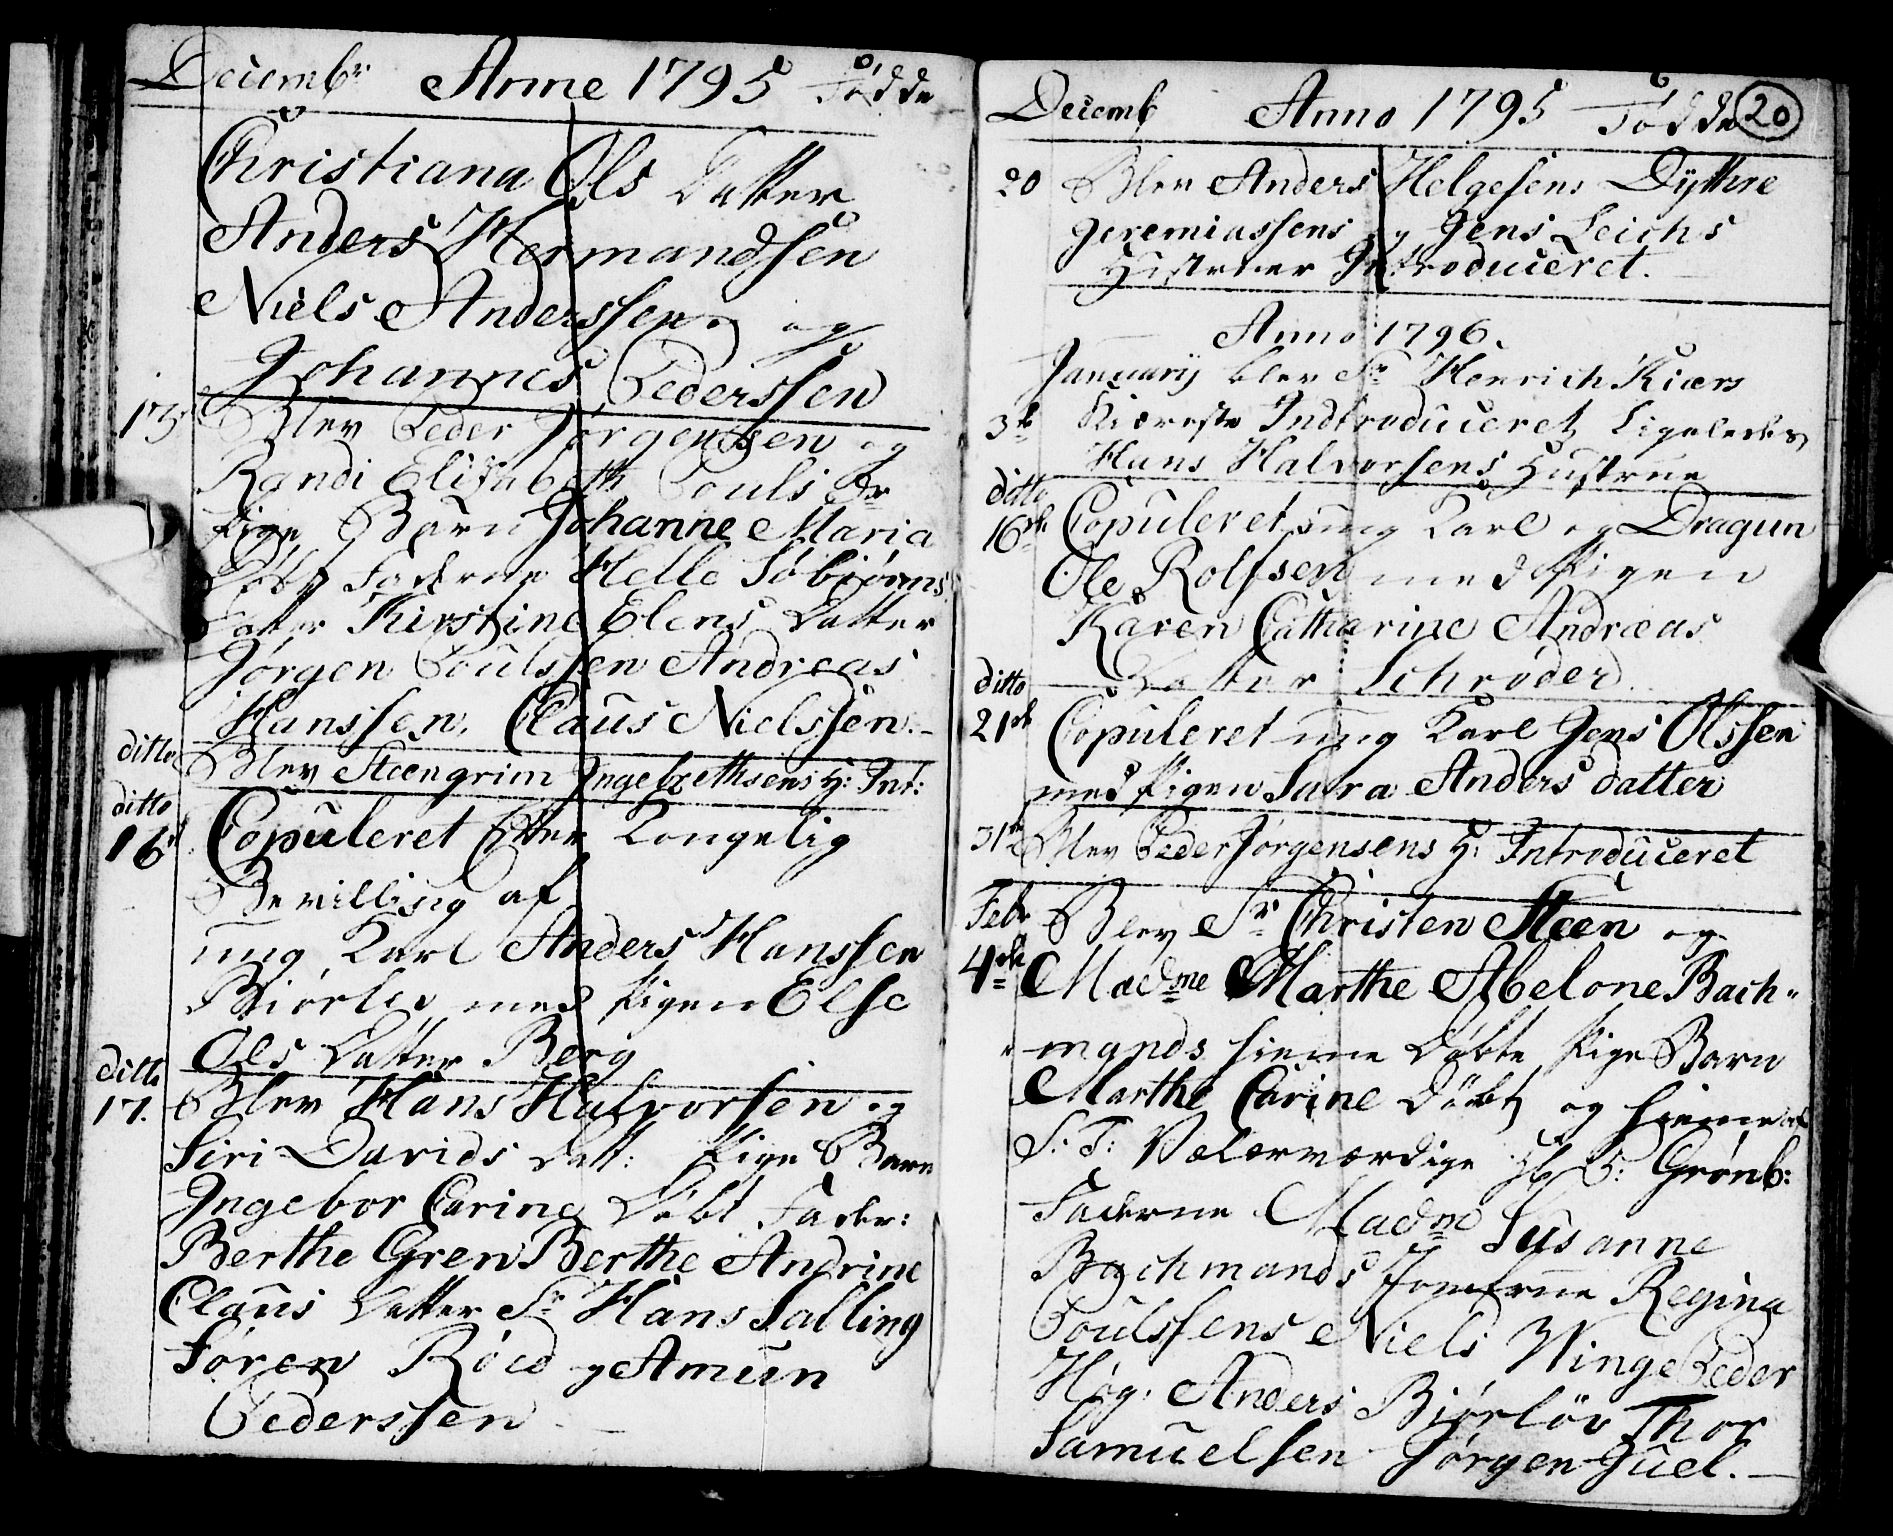 Decembr Anno 1795 Fødde
Christiana Ols Datter
Anders Hermandsen
Niels Anderssen og
Johannes Pederssen
13 Blev Peder Jørgensen og
Randi Elisabeth Pouls Dr
Pige Børn Johanne Maria
Døbt Faderne Helle Søbiørns
Datter Kirstine Elens Datter
Jørgen Poulssen Andreas
Hanssen. Claus Nielssen.
ditto Blev Steengrim Ingebrethsens H: Int:
ditto
16 Copuleret Efter Kongelig
Bevilling af
ung Karl Anders Hanssen
Biørløv med Pigen Else
Ols Datter Berg
ditto
17. Blev Hans Halvorsen og
Siri Davids Datt: Pige Barn
Ingebor Carine Døbt Fader:
Berthe Gren Berthe Andrine
Claus Datter Sr Hans Salling
Søren Røed og Amun
Pederssen
Decemb Anno 1795 Fødde 20
20 Blev Anders Helgesens Dythre
Jeremiassens og Jens Leichs
Hustruer Introduceret.
Anno 1796.
Januarij blev Sr Henrich Kiærs
3de Kiæreste Indtroduceret Ligeledes
Hans Halvorsens Hustrue
ditto
16de Copuleret ung Karl og Dragun
Ole Rolfsen med Pigen
Karen Catharine Andreas
Datter Schrøder
ditto
21de Copuleret ung Karl Jens Olssen
med Pigen Sara Anders datter
31te Blev Peder Jørgensens H: Introduceret
Febr Blev Sr Christen Steen og
4de Madme Marthe Abelone Bach-
mands hieme døbte Pige Barn
Marthe Carine døbt og hieme af
S: T: Velærværdige Hr P: Grønb:
Faderne Madme Susanne
Bachmands Jomfrue Regina
Poulssens Niels Winge Peder
Høg: Anders Biørløv Thor
Samuelsen Jørgen Juel.